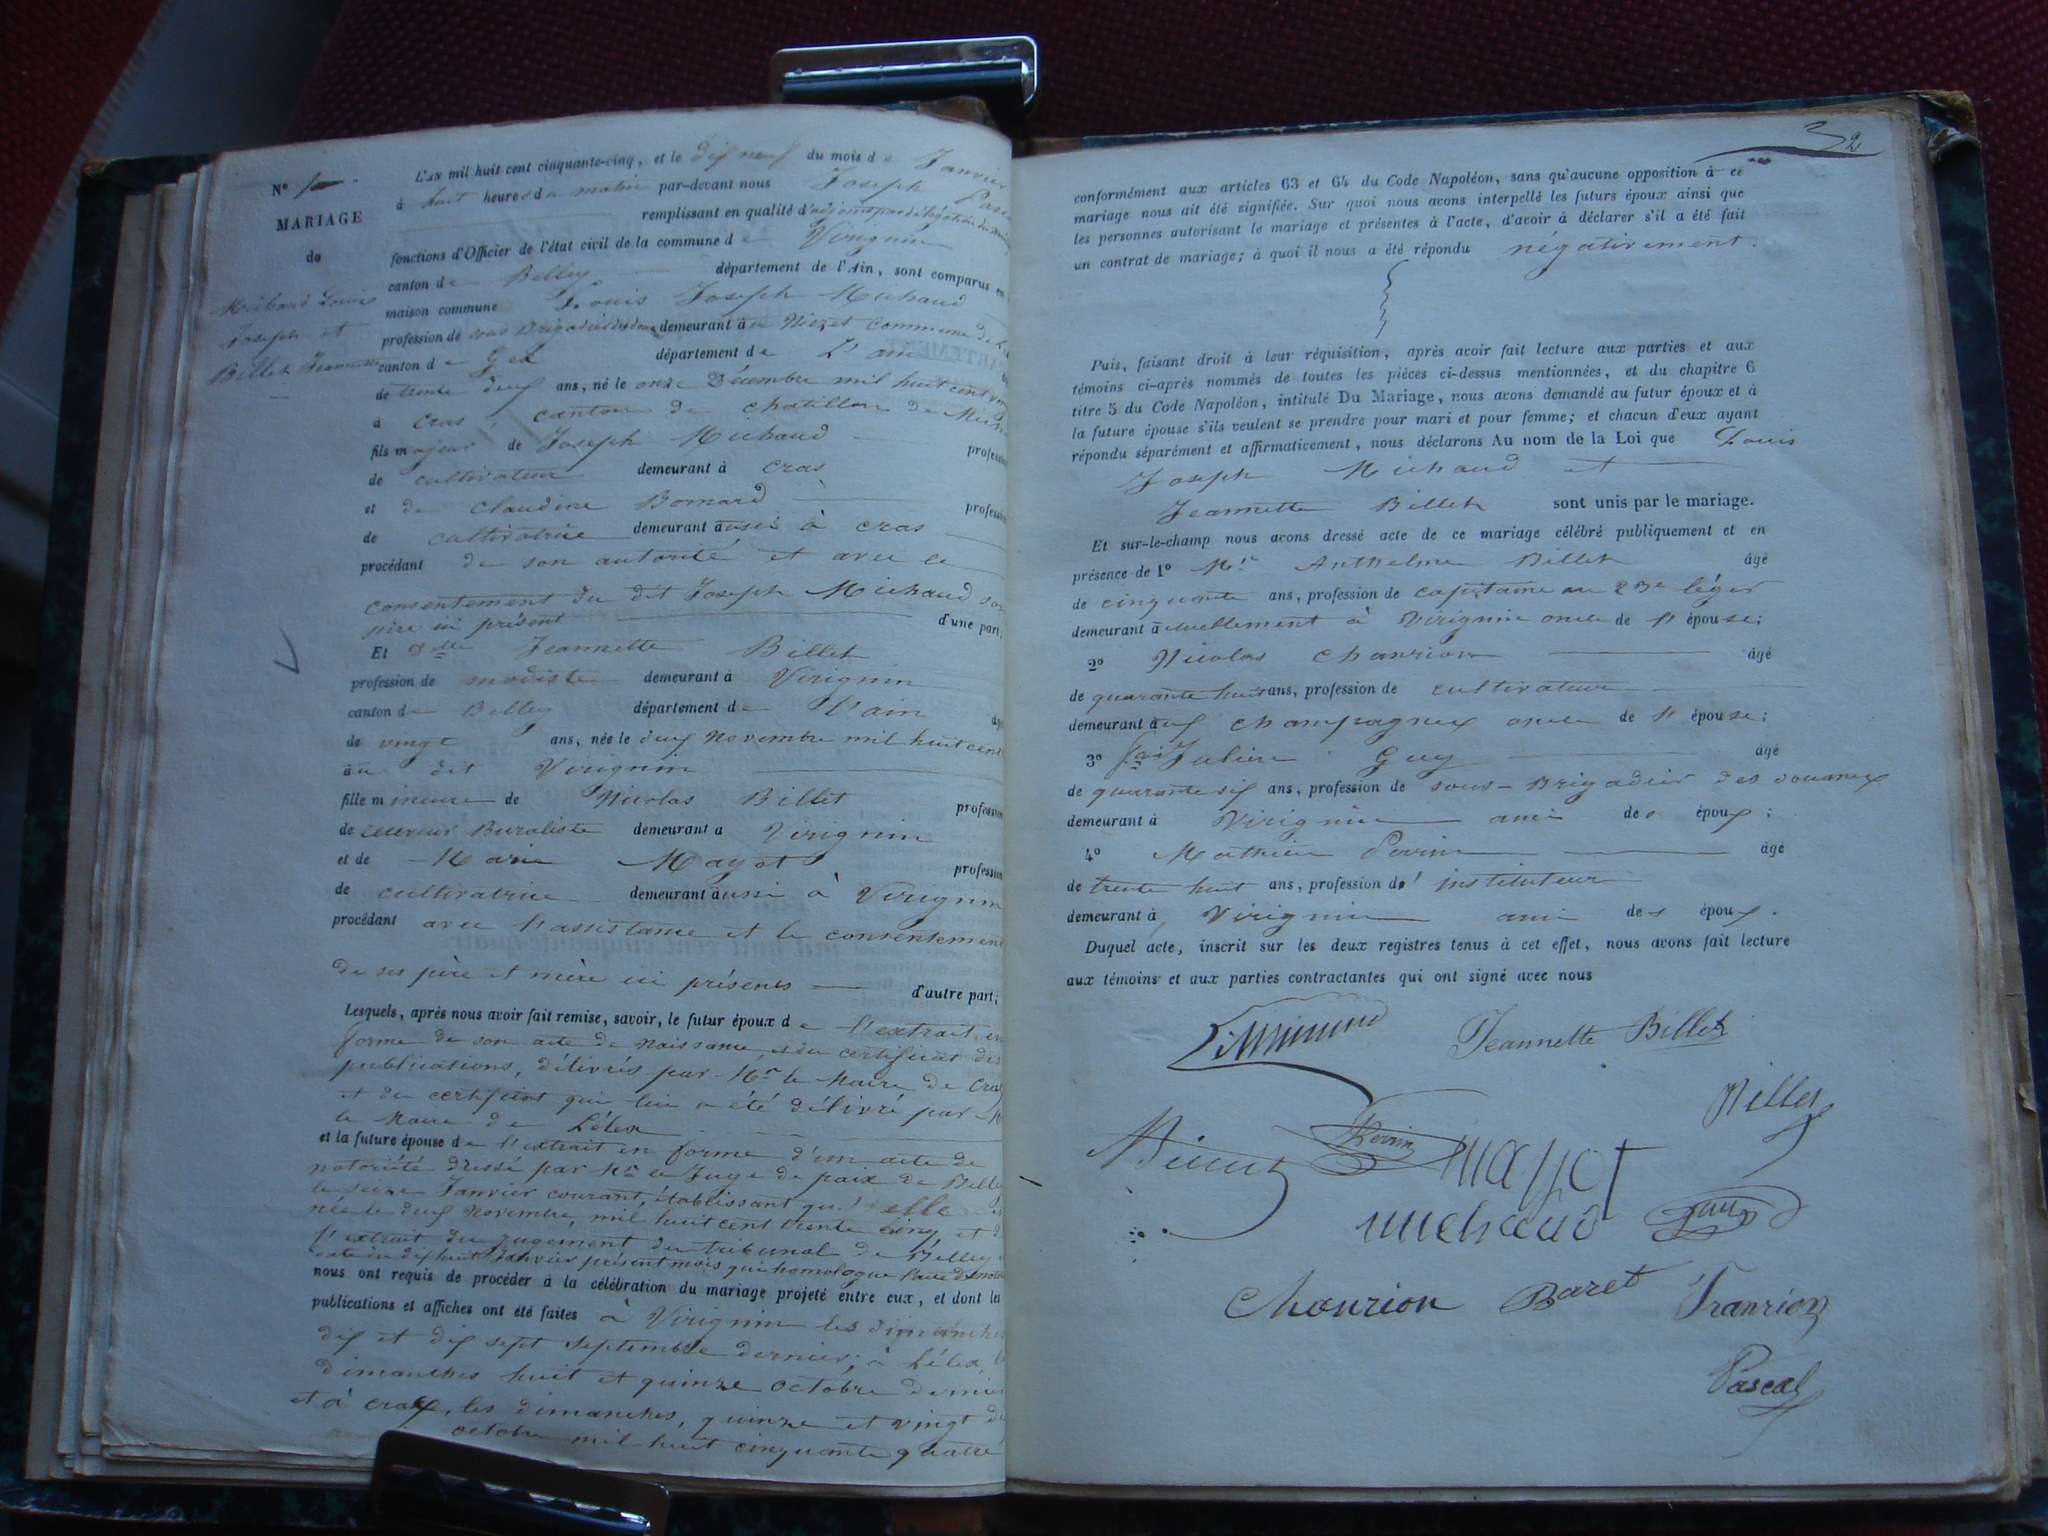 N° 1
MARIAGE
de
Michaud Louis
Joseph et
Billet Jeannette
L'AN mil huit cent cinquante-cinq, et le dix neuf du mois de Janvier
à huit heures du matin par-devant nous Joseph
remplissant en qualité d'adjoint par délégation du
fonctions d'Officier de l'état civil de la commune de Virignin
canton de Belley département de l'Ain, sont comparus en
maison commune Louis Joseph Michaud
profession de sous Brigadier des demeurant à Commune de
canton de Gex département de L'ain
de trente deux ans, né le onze Décembre mil huit cent
à Cras, canton de chatillon de
fils majeur de Joseph Michaud profession
de cultivateur demeurant à cras
et de claudine Bornard profession
de cultivatrice demeurant aussi à cras
procédant de son autorité et avec le
consentement du dit Joseph Michaud son
père ici présent d'une part;
Et Delle Jeannette Billet
profession de modiste demeurant à Virignin
canton de Belley département de l'ain âgée
de vingt ans, née le deux Novembre mil huit cent
au dit Virignin
fille mineure de Nicolas Billet profession
de receveur Buraliste demeurant à Virignin
et de Marie Mayot profession
de cultivatrice demeurant aussi à Virignin
procédant avec l'assistance et le consentement
de ses père et mère ici présents d'autre part;
Lesquels, après nous avoir fait remise, savoir, le futur époux de l'extrait en
forme de son acte de naissance, du certificat des
publications, délivrés par Mr le Maire de Cras
et du certificat qui lui a été délivré par Mr
le Maire de Lélex
et la future épouse de l'extrait en forme d'un acte de
notoriété dressé par Mr le Juge de paix de Belley
le seize Janvier courant, établissant qu'elle est
née le deux Novembre, mil huit cent trente cinq, et de
l'extrait du jugement du tribunal de Belley en
date du dix huit Janvier présent mois qui homologue l'acte de
nous ont requis de procéder à la célébration du mariage projeté entre eux, et dont les
publications et affiches ont été faites à Virignin les dimanches
dix et dix sept Septembre dernier; à Lélex, les
dimanches huit et quinze octobre dernier
et à cras, les dimanches, quinze et vingt
octobre mil huit cinquante quatre
32
conformément aux articles 63 et 64 du Code Napoléon, sans qu'aucune opposition à ce
mariage nous ait été signifiée. Sur quoi nous avons interpellé les futurs époux ainsi que
les personnes autorisant le mariage et présentes à l'acte, d'avoir à déclarer s'il a été fait
un contrat de mariage; à quoi il nous a été répondu négativement.
Puis, faisant droit à leur réquisition, après avoir fait lecture aux parties et aux
témoins ci-après nommés de toutes les pièces ci-dessus mentionnées, et du chapitre 6
titre 5 du Code Napoléon, intitulé Du Mariage, nous avons demandé au futur époux et à
la future épouse s'ils veulent se prendre pour mari et pour femme; et chacun d'eux ayant
répondu séparément et affirmativement, nous déclarons Au nom de la Loi que Louis
Joseph Michaud et
Jeannette Billet sont unis par le mariage.
Et sur-le-champ nous avons dressé acte de ce mariage célébré publiquement et en
présence de 1° Mr Anthelme Billet âgé
de cinquante ans, profession de capitaine au 23e léger
demeurant actuellement à Virignin oncle de l'épouse;
2° Nicolas Chanrion âgé
de quarante huit ans, profession de cultivateur
demeurant à champagneux oncle de l'épouse;
3° Julien Guy âgé
de quarante six ans, profession de sous-Brigadier des douanes
demeurant à Virignin ami des époux;
4° Mathieu Perrin âgé
de trente huit ans, profession d'instituteur
demeurant à Virignin ami des époux.
Duquel acte, inscrit sur les deux registres tenus à cet effet, nous avons fait lecture
aux témoins et aux parties contractantes qui ont signé avec nous
Jeannette Billet
Billet
Perrin
mayot
michaud
Chanrion
Baret
Pascal